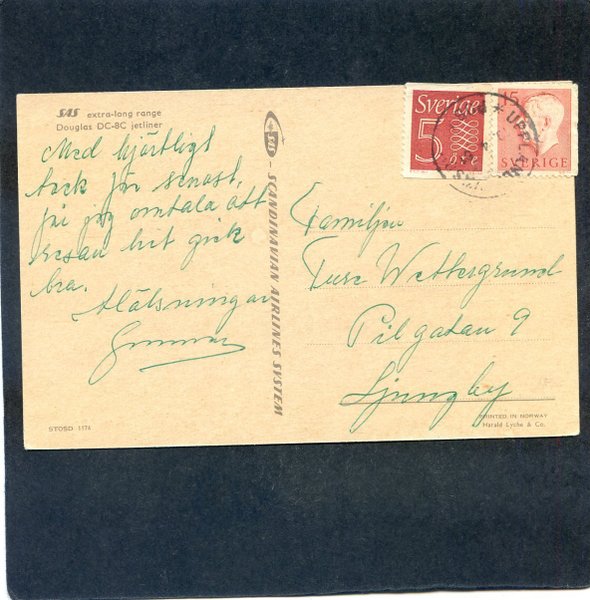 SAS extra-long range
Douglas DC-8C jetliner
Med hjärtligt
tack för senast,
får jag omtala att
resan hit gick
bra.
Hälsningar
Gunnar
STOSO 1174
SAS – SCANDINAVIAN AIRLINES SYSTEM
Sverige
5
öre
15
SVERIGE
UPPSALA
Familjen
Ture Wettergrund
Pilgatan 9
Ljungby
PRINTED IN NORWAY
Harald Lyche & Co.